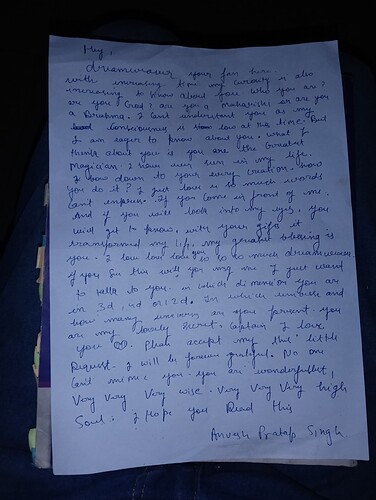 Hey,
dreamweaver your fan here.
with increasing time my curiosity is also
increasing to know about you. Who you are?
are you God? are you a Maharishi or are you
a Brahma. I cant understand you as my
consciousness is low at this time. But
I am eager to know about you. what I
think about you is you are the Greatest
Magician. I have ever seen in my life.
I bow down to your every creation. how
you do it? I just love is so much words
can't express. If you come in front of me.
And if you will look into my eyes, you
will get to know, with your gift it
transformed my life, my greatest blessing is
you. I love love love you so so so much dreamweaver.
if you See this will you msg me. I just want
to talk to you. in which dimension you are
in 3d, 4d or 12d. In which universe and
how many universes are you present. you
are my lovely Secret Captain I love
you. Please accept my this little
Request. I will be forever grateful. No one
Can't mimic you. you are wonderful,
Very Very Very wise. Very Very Very high
Soul. I Hope you Read this
Anvesh Pratap Singh